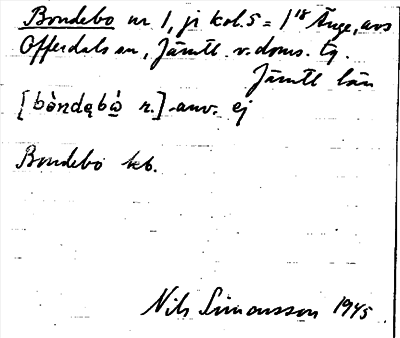 Bondebo nr 1, jr kol. 5 = 1¹⁸ Änge, avs
Offerdals sn, Jämtl. v. doms. tg.
Jämtl län
[bòndəbò n.] anv. ej
Bondebo kb.
Nils Simonsson 1945